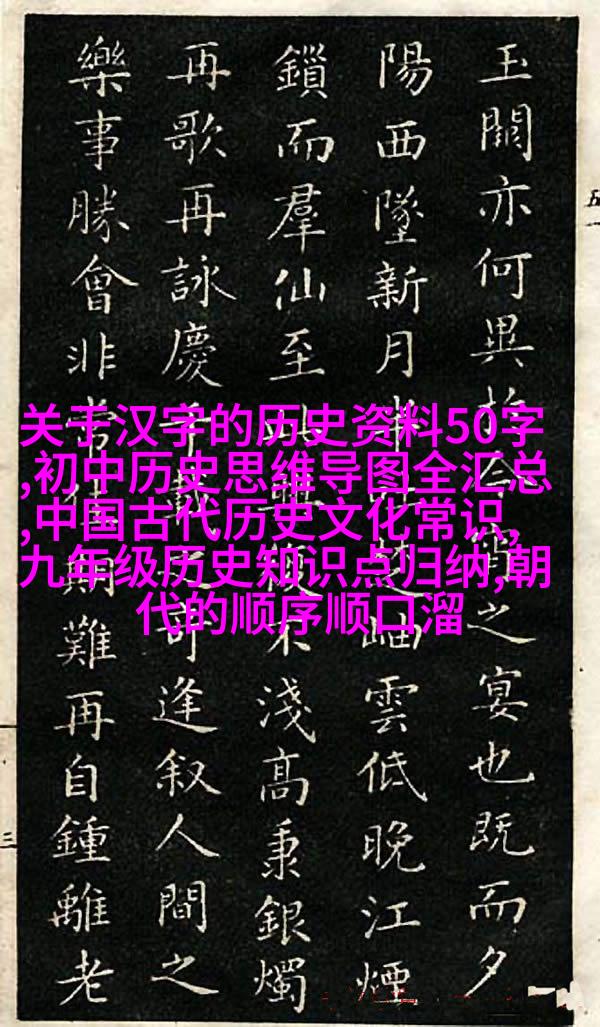 玉闕亦何異於今宵之宴也既而夕
陽西墜新月半楚岫雲低晚江煙
鎖而羣仙至此興復不淺高秉銀燭
再歌再詠慶千載之奇逢叙人間之
樂事勝會非常佳期難再自鍾離老
关于汉字的历史资料50字
,初中历史思维导图全汇总
,中国古代历史文化常识,
九年级历史知识点归纳,朝
代的顺序顺口溜
五
三